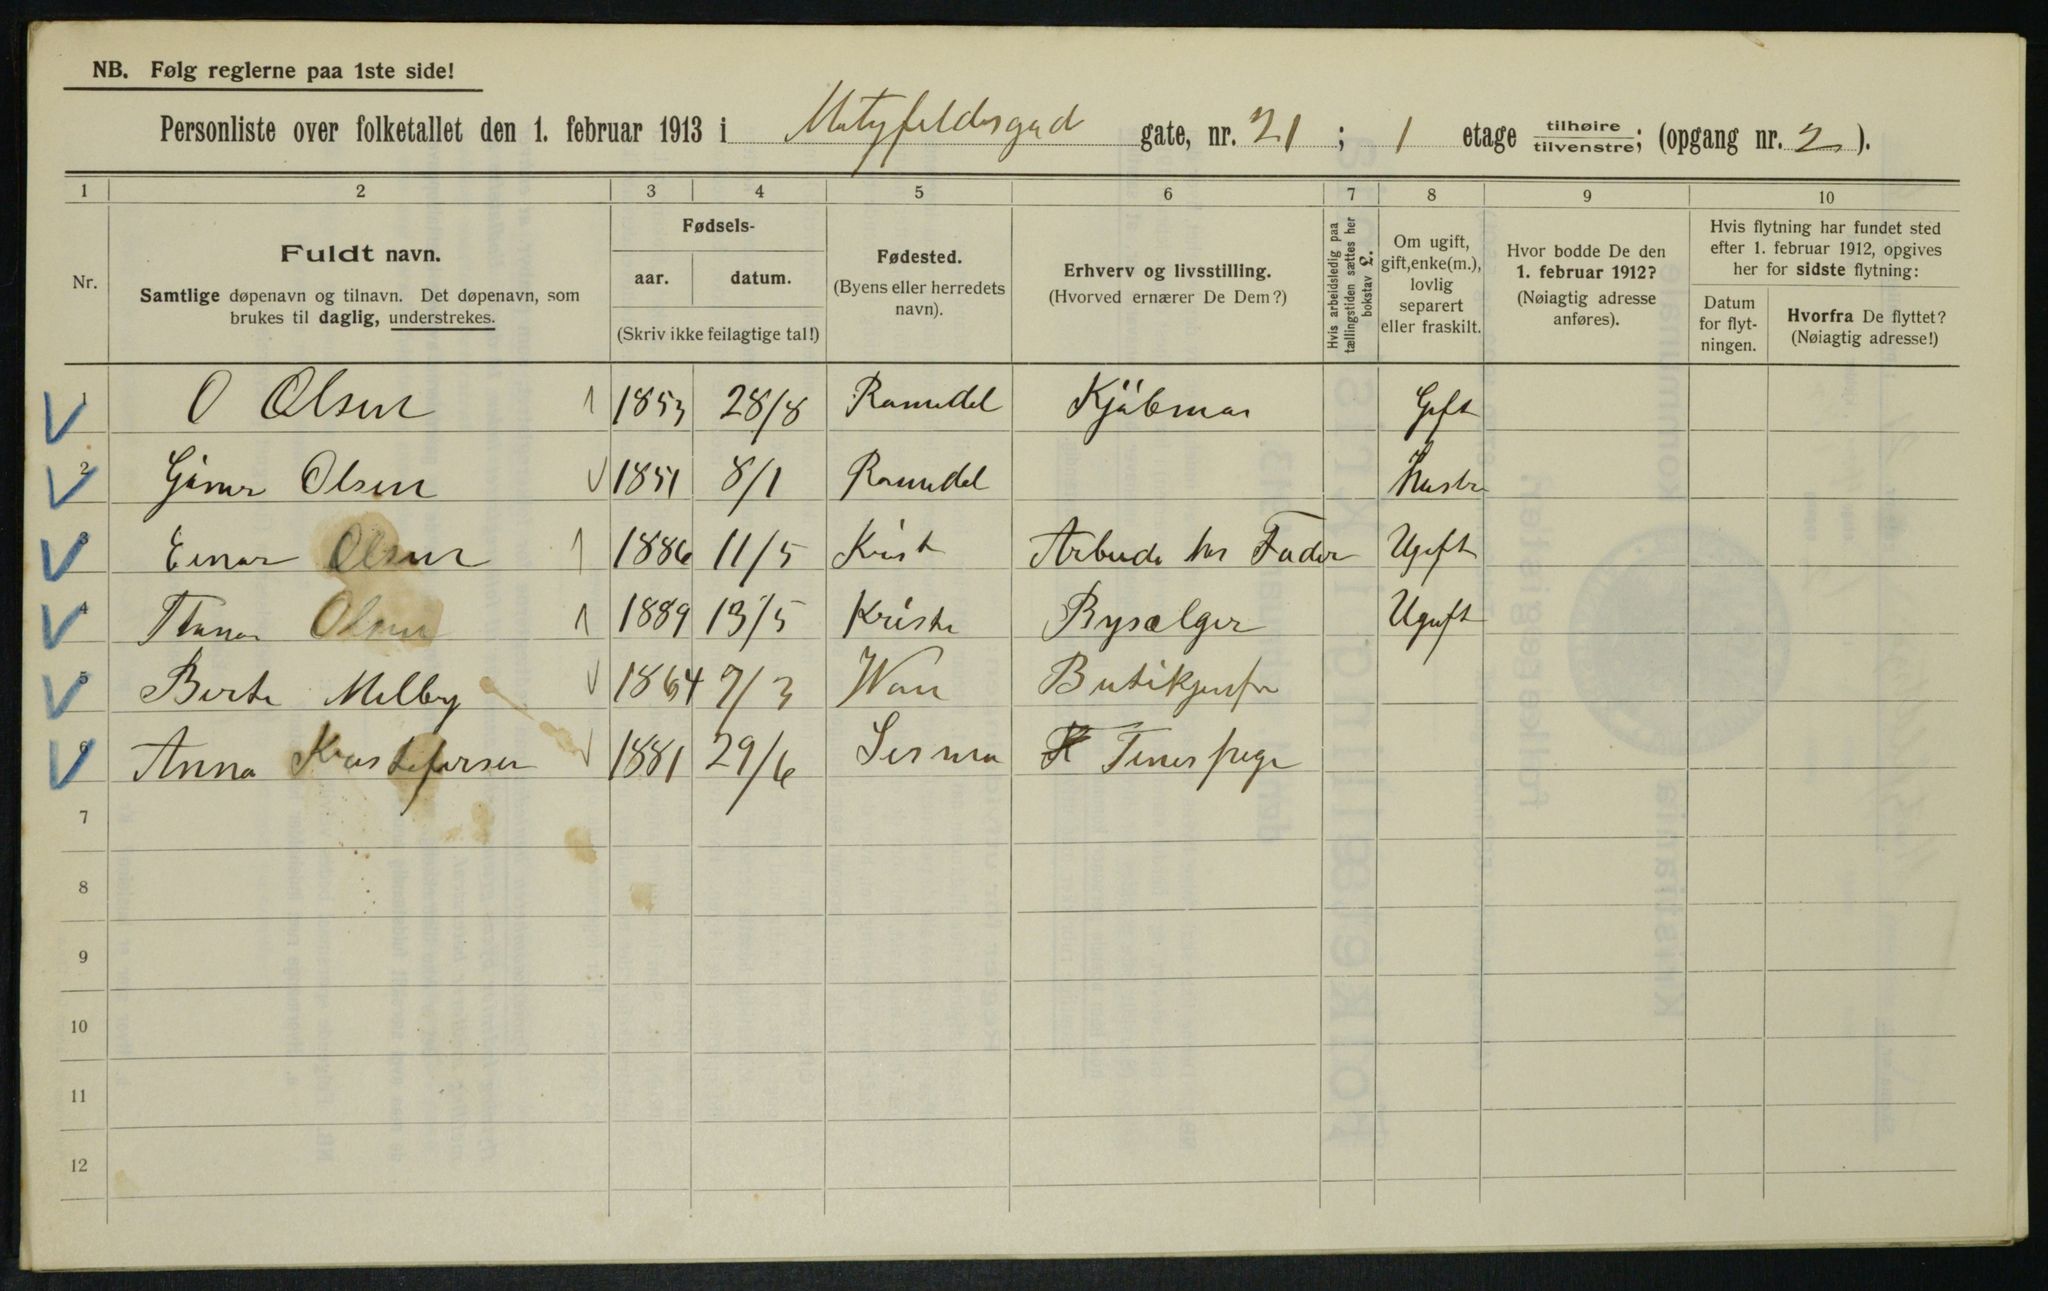 NB. Følg reglerne paa 1ste side!
Personliste over folketallet den 1. februar 1913 i gate, nr. 21 ; 1 etage tilhøire tilvenstre; (opgang nr. 2 ).
1 2 3 4 5 6 7 8 9 10
Nr.
Fuldt navn.
Samtlige døpenavn og tilnavn. Det døpenavn, som
brukes til daglig, understrekes.
Fødsels-
aar. datum.
(Skriv ikke feilagtige tal!)
Fødested.
(Byens eller herredets
navn).
Erhverv og livsstilling.
(Hvorved ernærer De Dem?)
Hvis arbeidsledig paa
tællingstiden sættes her
bokstav L.
Om ugift,
gift, enke(m.),
lovlig
separert
eller fraskilt.
Hvor bodde De den
1. februar 1912?
(Nøiagtig adresse
anføres).
Hvis flytning har fundet sted
efter 1. februar 1912, opgives
her for sidste flytning:
Datum
for flyt-
ningen.
Hvorfra De flyttet?
(Nøiagtig adresse!)
1 O Olsen 1853 28/8 Kjöbman Gift
2 Olsen 1851 8/1 Hustr
3 Einar Olsen 1886 11/5 Krist Arbeide hos Fader Ugift
4 Olsen 1889 13/5 Kristi Rysælger Ugift
5 Berte Melby 1864 7/3 Butikjomfr
6 Anna Kristofersen 1881 29/6 Tinespege
7
8
9
10
11
12